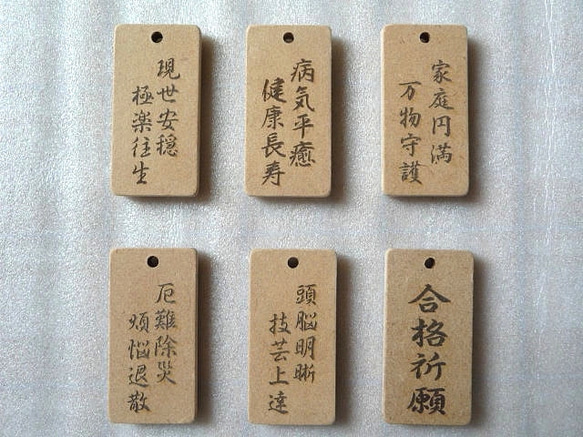 現世安穏
極楽往生
病気平癒
健康長寿
家庭円満
万物守護
厄難除災
煩悩退散
頭脳明晰
技芸上達
合格祈願